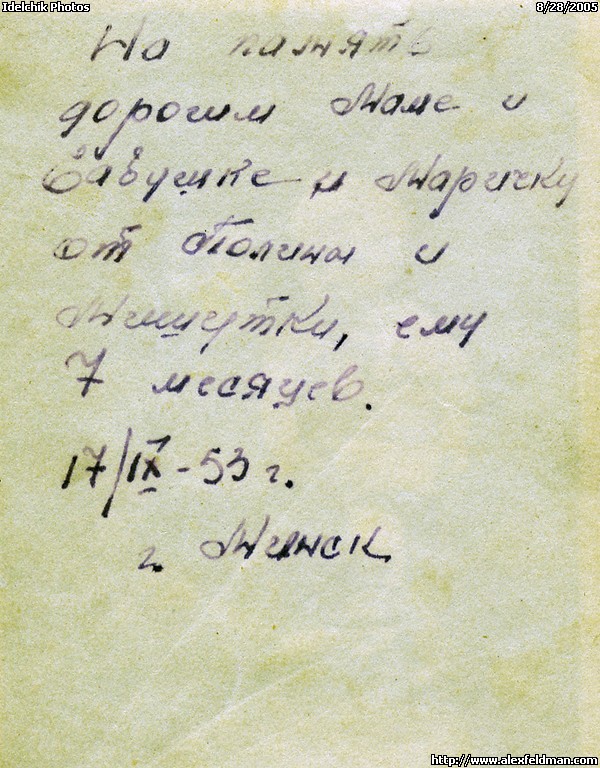 Idelchik Photos 8/28/2005
На память
дорогим Маме и
бабушке и Маричку
от Полины и
Мишутки, ему
7 месяцев.
17/IX-53 г.
г. Минск
http://www.alexfeldman.com